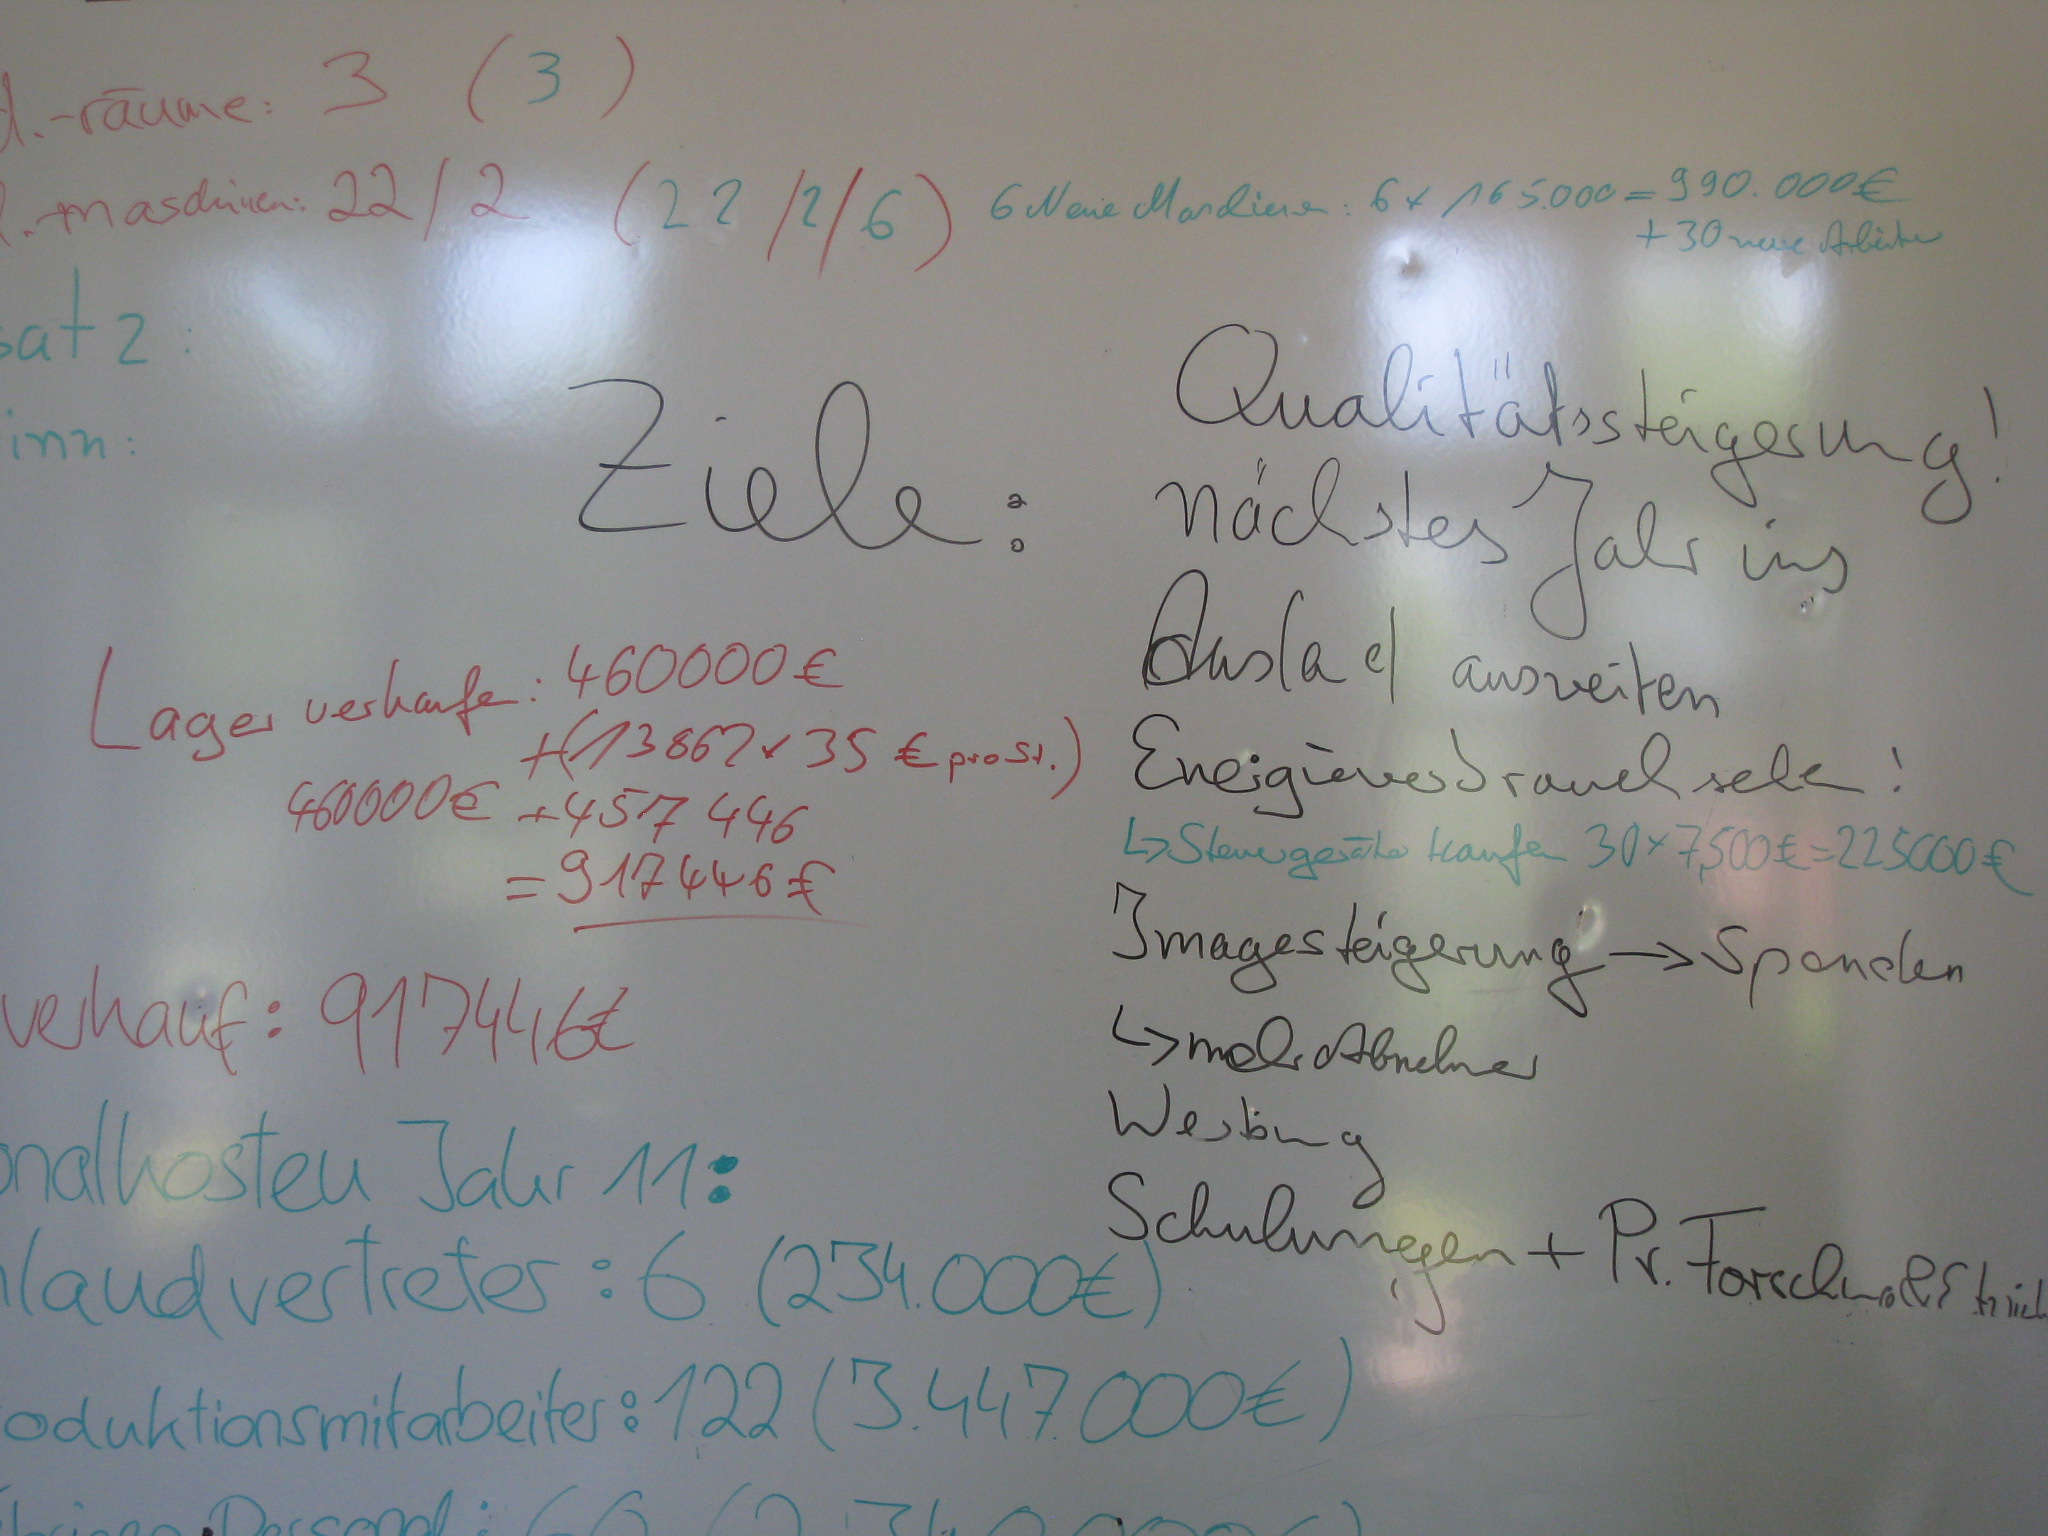 d.-räume: 3 (3)
d.-maschinen: 22/2 (22/2/6) 6 Neue Maschienen: 6 x 165.000 = 990.000€
+ 30 neue Arbeiter
satz:
inn:
Ziele:
Qualitätssteigerung!
nächstes Jahr ins
Auslad ausweiten
Energieverbrauch senken!
↳ Steuergeräte kaufen 30 x 7,500€ = 225000€
Imagesteigerung → Spenden
↳ mehr Abnehmer
Werbung
Schulungen + Pr. Forschung
Lager verkaufen: 460000€
+(13862 x 35 € pro St.)
460000€ + 457 446
= 917446€
verkauf: 917446€
onalkosten Jahr 11:
nlandvertreter: 6 (234.000€)
oduktionsmitarbeiter: 122 (3.447.000€)
Personal: